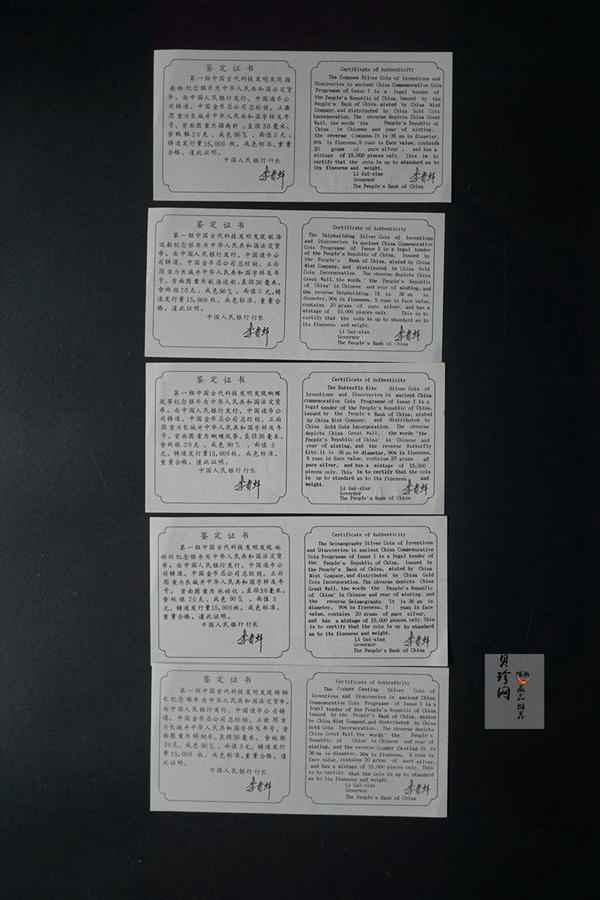 鉴定证书
第一组中国古代科技发明发现指
南针纪念银币为中华人民共和国法定货
币。由中国人民银行发行，中国造币公
司铸造，中国金币总公司总经销。正面
图案为长城并中华人民共和国字样及年
号。背面图案为指南针，直径36毫米，
含纯银20克，成色90%，面值5元，
铸造发行量15,000枚，成色标准，重量
合格。谨此证明。
中国人民银行行长
Certificate of Authenticity
The Compass Silver Coin of Inventions and
Discoveries in ancient China Commemorative Coin
Programme of Issue I is a legal tender of
the People's Republic of China, issued by the
People's Bank of China, misted by China Mint
Company, and distributed by China Gold Coin
Incorporation. The obverse depicts China Great
Wall, the words 'the People's Republic of
China' in Chinese and year of misting, the
reverse Compass. It is 36 mm in diameter, 90%
in fineness, 5 yuan in face value, contains
20 grams of pure silver, and has a
mintage of 15,000 pieces only. This is to
certify that the coin is up to standard as to
its fineness and weight.
Li Gui-xian
Governor
The People's Bank of China
鉴定证书
第一组中国古代科技发明发现航海
造船纪念银币为中华人民共和国法定货
币。由中国人民银行发行，中国造币公
司铸造，中国金币总公司总经销。正面
图案为长城并中华人民共和国字样及年
号。背面图案为航海造船，直径36毫米，
含纯银20克，成色90%，面值5元，铸
造发行量15,000枚，成色标准，重量合
格。谨此证明。
中国人民银行行长
Certificate of Authenticity
The Shipbuilding Silver Coin of Inventions
and Discoveries in ancient China Commemorative
Coin Programme of Issue I is a legal tender
of the People's Republic of China, issued by
the People's Bank of China, misted by China
Mint Company, and distributed by China Gold
Coin Incorporation. The obverse depicts China
Great Wall, the words 'the People's Republic of
China' in Chinese and year of misting, and
the reverse Shipbuilding. It is 36 mm in
diameter, 90% in fineness, 5 yuan in face value,
contains 20 grams of pure silver, and has a
mintage of 15,000 pieces only. This is to
certify that the coin is up to standard as to
its fineness and weight.
Li Gui-xian
Governor
The People's Bank of China
鉴定证书
第一组中国古代科技发明发现蝴蝶
风筝纪念银币为中华人民共和国法定货
币。由中国人民银行发行，中国造币公
司铸造，中国金币总公司总经销。正面
图案为长城并中华人民共和国字样及年
号。背面图案为蝴蝶风筝，直径36毫米，
含纯银20克，成色90%，面值5
元，铸造发行量15,000枚，成色标准，
重量合格。谨此证明。
中国人民银行行长
Certificate of Authenticity
The Butterfly Kite Silver Coin of
Inventions and Discoveries in ancient China
commemorative Coin Programme of Issue I is a
legal tender of the People's Republic of China,
issued by the People's Bank of China, misted
by China Mint Company, and distributed by
China Gold Coin Incorporation. The obverse
depicts China Great Wall, the words 'the
People's Republic of China' in Chinese and
year of misting, and the reverse Butterfly
Kite. It is 36 mm in diameter, 90% in fineness,
5 yuan in face value, contains 20 grams of
pure silver, and has a mintage of 15,000
pieces only. This is to certify that the coin
is up to standard as to its fineness and
weight.
Li Gui-xian
Governor
The People's Bank of China
鉴定证书
第一组中国古代科技发明发现地
动仪纪念银币为中华人民共和国法定货
币。由中国人民银行发行，中国造币公
司铸造，中国金币总公司总经销。正面
图案为长城并中华人民共和国字样及年
号。背面图案为地动仪，直径36毫米，
含纯银20克，成色90%，面值5
元，铸造发行量15,000枚，成色标准，
重量合格。谨此证明。
中国人民银行行长
Certificate of Authenticity
The Seismography Silver Coin of Inventions
and Discoveries in ancient China Commemorative
Coin Programme of Issue I is a legal tender
of the People's Republic of China, issued by
the People's Bank of China, misted by China
Mint Company, and distributed by China Gold
Coin Incorporation. The obverse depicts China
Great Wall, the words 'the People's Republic
of China' in Chinese and year of misting, and
the reverse Seismography. It is 36 mm in
diameter, 90% in fineness, 5 yuan in face
value, contains 20 grams of pure silver,
and has a mintage of 15,000 pieces only. This
is to certify that the coin is up to standard
as to its fineness and weight.
Li Gui-xian
Governor
The People's Bank of China
鉴定证书
第一组中国古代科技发明发现铸铜
术纪念银币为中华人民共和国法定货币。
由中国人民银行发行，中国造币公司铸
造，中国金币总公司总经销。正面图案
为长城并中华人民共和国字样及年号。背
面图案为铸铜术，直径36毫米，含纯银
20克，成色90%，面值5元，铸造发行
量15,000枚，成色标准，重量合格。谨
此证明。
中国人民银行行长
Certificate of Authenticity
The Copper Casting Silver Coin of
Inventions and Discoveries in ancient China
Commemorative Coin Programme of Issue I is a
legal tender of the People's Republic of China,
issued by the People's Bank of China, misted
by China Mint Company, and distributed by China
Gold Coin Incorporation. The obverse depicts
China Great Wall, the words 'the People's
Republic of China' in Chinese and year of
misting, and the reverse Copper Casting. It is
36 mm in diameter, 90% in fineness, 5 yuan in
face value, contains 20 grams of pure silver,
and has a mintage of 15,000 pieces only. This
is to certify that the coin is up to standard
as to its fineness and weight.
Li Gui-xian
Governor
The People's Bank of China
珍网
商品推荐